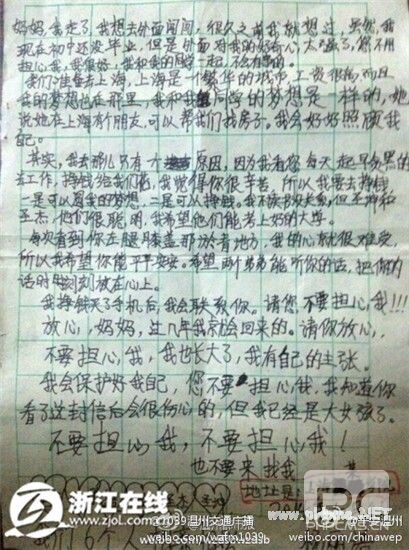 妈妈,我走了,我想去外面闯闯,很久之前我就想过,虽然,我
现在初中还没毕业,但是外面对我的好奇心太强了,您不用
担心我,我很好,我和我的同学一起,不会有事的。
我们准备去上海,上海是一个繁华的城市,工资很高,而且
我的梦想也在那里,我和我同学的梦想是一样的,她
说她在上海有个朋友,可以帮我们找房子。我会好好照顾我
自己。
其实,我去那儿只有一个原因,因为我看您每天起早摸黑的
去工作,挣钱给我们花,我觉得你很辛苦,所以我要去挣钱
一是可以圆我的梦想,二是可以挣钱,我不读书没关系,但
王杰,他们很聪明,我希望他们能考上好的大学。
每次看到你在腿膝盖那淤青地方,我的心就很难受,
所以我希望你能平平安安。希望两个弟弟能听你的话,把你的
话时时刻刻放在心上。
我挣钱买了手机后,我会联系你。请您不要担心我!!!
放心,妈妈,过几年我就会回来的。请你放心,
不要担心我,我也长大了,我有自己的主张。
我会保护好我自己,您不要担心我,我知道你
看了这封信后会很伤心的,但我已经是大女孩了。
不要担心我,不要担心我!
也不要来找我
地址是
浙江在线
www.zjol.com.cn
@1039温州交通广播
weibo.com/wzfm1039
weibo.com/chinawep